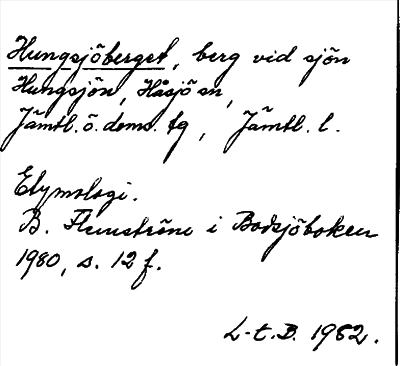 Hungsjöberget, berg vid sjön
Hungsjön, Håsjö sn,
Jämtl. ö. doms. tg, Jämtl. l.
Etymologi.
B. Flemström i Bodsjöboken
1980, s. 12 f.
L-t. B. 1982.